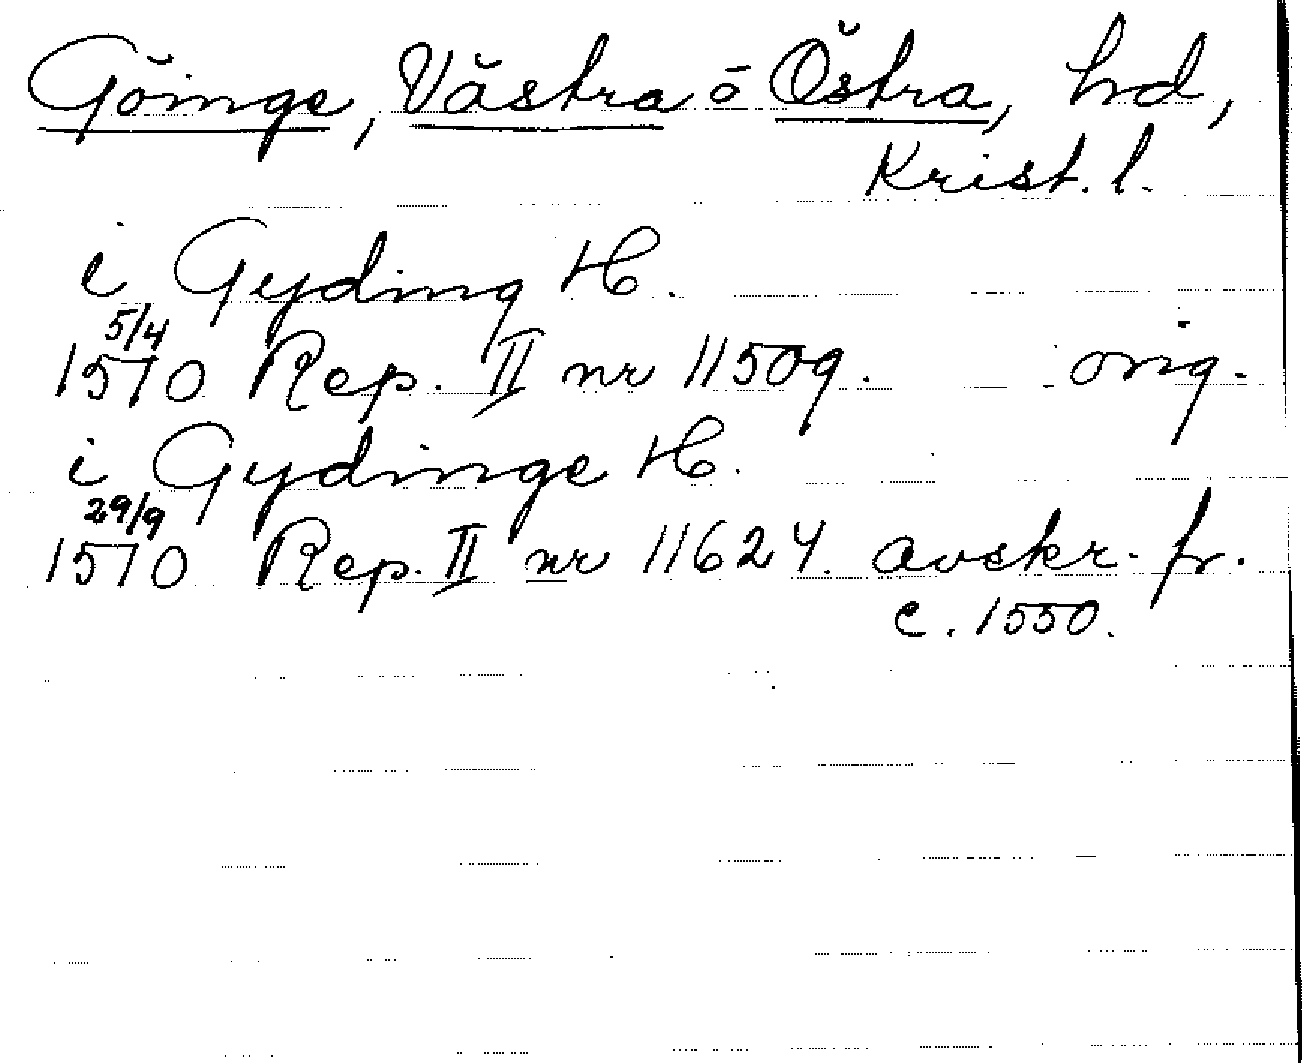 Göinge, Västra o Östra, hd,
Krist. l.
i Gyding H.
5/4
1570 Rep. II nr 11509. orig.
i Gydinge H.
29/9
1570 Rep. II nr 11624. avskr. fr.
c. 1550.